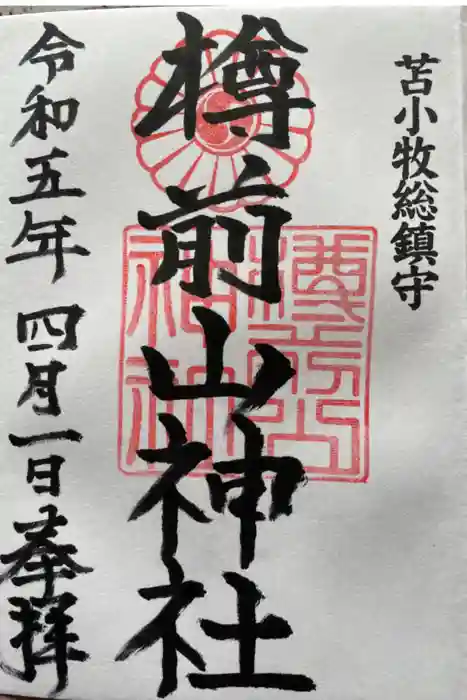 苫小牧総鎮守
樽前山神社
令和五年四月一日奉拝
樽前山
神社